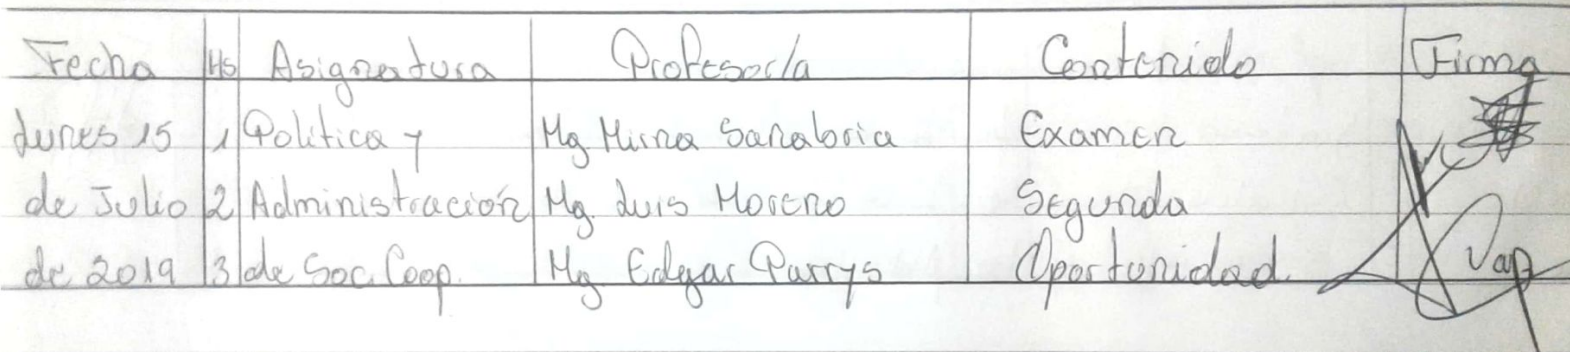 Fecha Hs Asignatura Profesor/a Contenido Firma
Lunes 15 1 Política y Mg Mirna Sanabria Examen
de Julio 2 Administración Mg. Luis Moreno Segunda
de 2019 3 de Soc. Coop. Mg Edgar Parrys Oportunidad